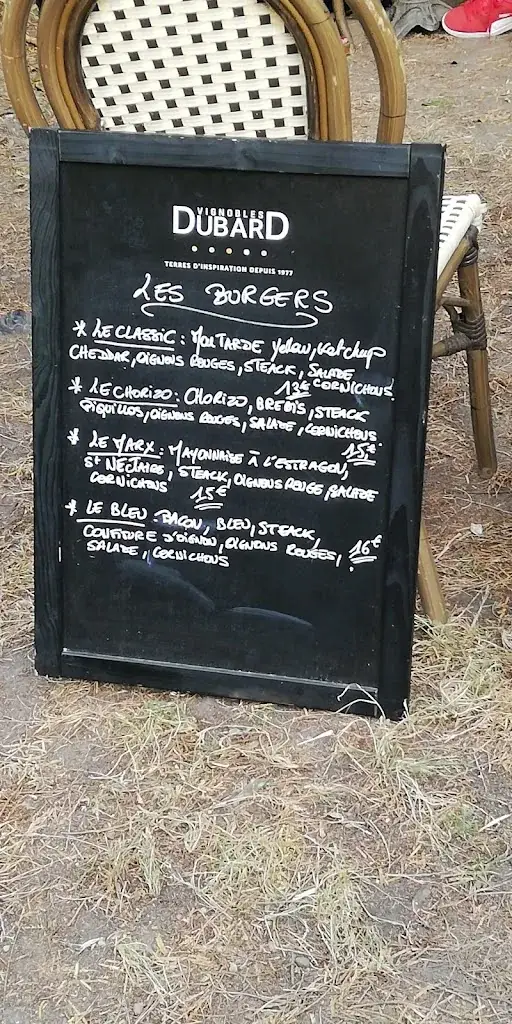 VIGNOBLES
DUBARD
TERRES D'INSPIRATION DEPUIS 1977
LES BURGERS
* LE CLASSIC : MOUTARDE Yellow, Ketchup
CHEDDAR, OIGNONS ROUGES, STEACK, SALADE
13€ CORNICHONS.
* LE CHORIZO : CHORIZO, BREBIS, STEACK
PIQUILLOS, OIGNONS ROUGES, SALADE, CORNICHONS
15€
* LE MARX : MAYONNAISE À L'ESTRAGON,
St NECTAIRE, STEACK, OIGNONS ROUGE, SALADE
CORNICHONS 15€
* LE BLEU : BACON, BLEU, STEACK,
CONFITURE D'OIGNON, OIGNONS ROUGES, 16€
SALADE, CORNICHONS